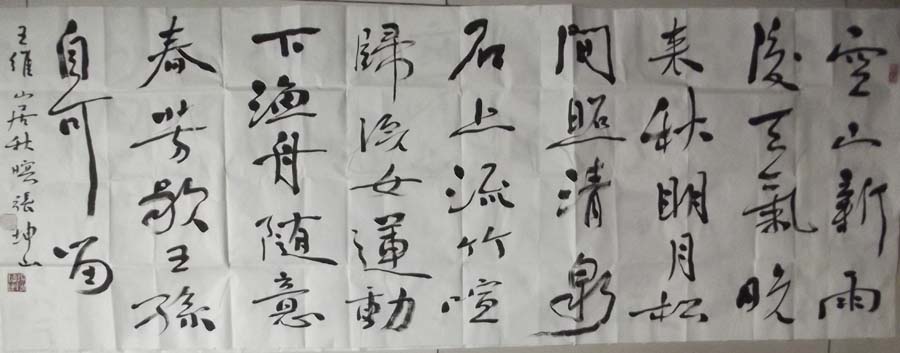 空山新雨
後天氣晚
来秋明月松
間照清泉
石上流竹喧
歸浣女蓮動
下漁舟随意
春芳歇王孫
自可留
王維山居秋暝張坤山